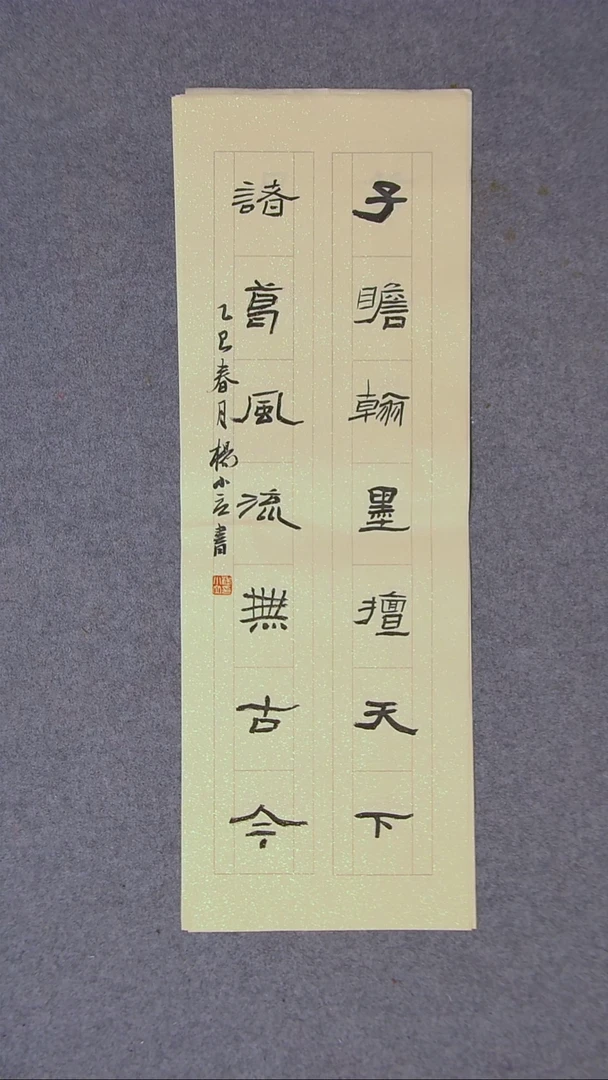 子瞻翰墨擅天下
諸葛風流無古今
乙巳春月楊小立書